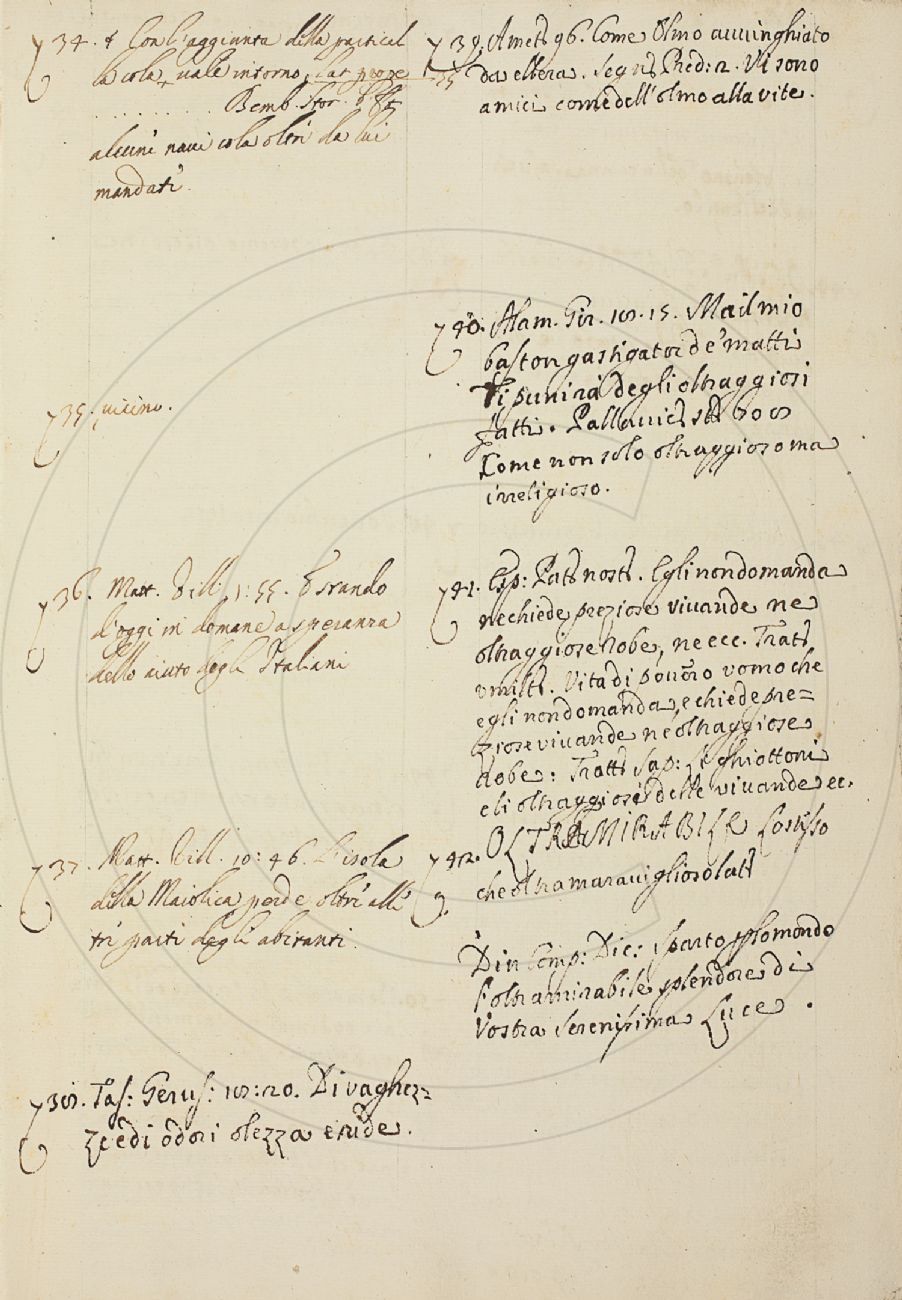 34. + Con l'aggiunta della particel
la cola, vale intorno, Lat. prope
Bemb. Stor.
alcuni navi cola oltri da lui
mandati.
35. vicino.
36. Matt. Vill. 1:55. Estando
d'oggi in domane a speranza
dello aiuto degli Italiani
37. Matt. Vill. 10:46. L'isola
della Maiolica perde oltri alli
tri parti degli abitanti.
38. Tas: Gerus: 18:20. Di vaghez=
ze e di odori olezza e ride.
39. Amet. 96. Come Olmo avvinghiato
da ellera. Segn. Pred: 2. Vi sono
amici come dell'olmo alla vite.
40. Alam. Gir. 18.15. Ma il mio
baston gastigator de' matti
Ti punirà degli oltraggiosi
fatti. Pallavic.
Come non solo oltraggioso ma
irreligioso.
41. Esp: Pat. nost. Egli non domanda
ne chiede preziose vivande ne
oltraggiose Robe, ne ecc. Tratt.
umilt. Vita di povero uomo che
egli non domanda, e chiede pre=
ziose vivande né oltraggiose
Robe: Tratt. Sap: li ghiottoni
e li oltraggiosi delle vivande ec.
42. OLTRAMIRABILE Lo stesso
che oltramaraviglioso Lat.
Din Comp: Dic: Sparto pplo mondo
l'oltramirabile splendore di
Vostra Serenissima Luce.